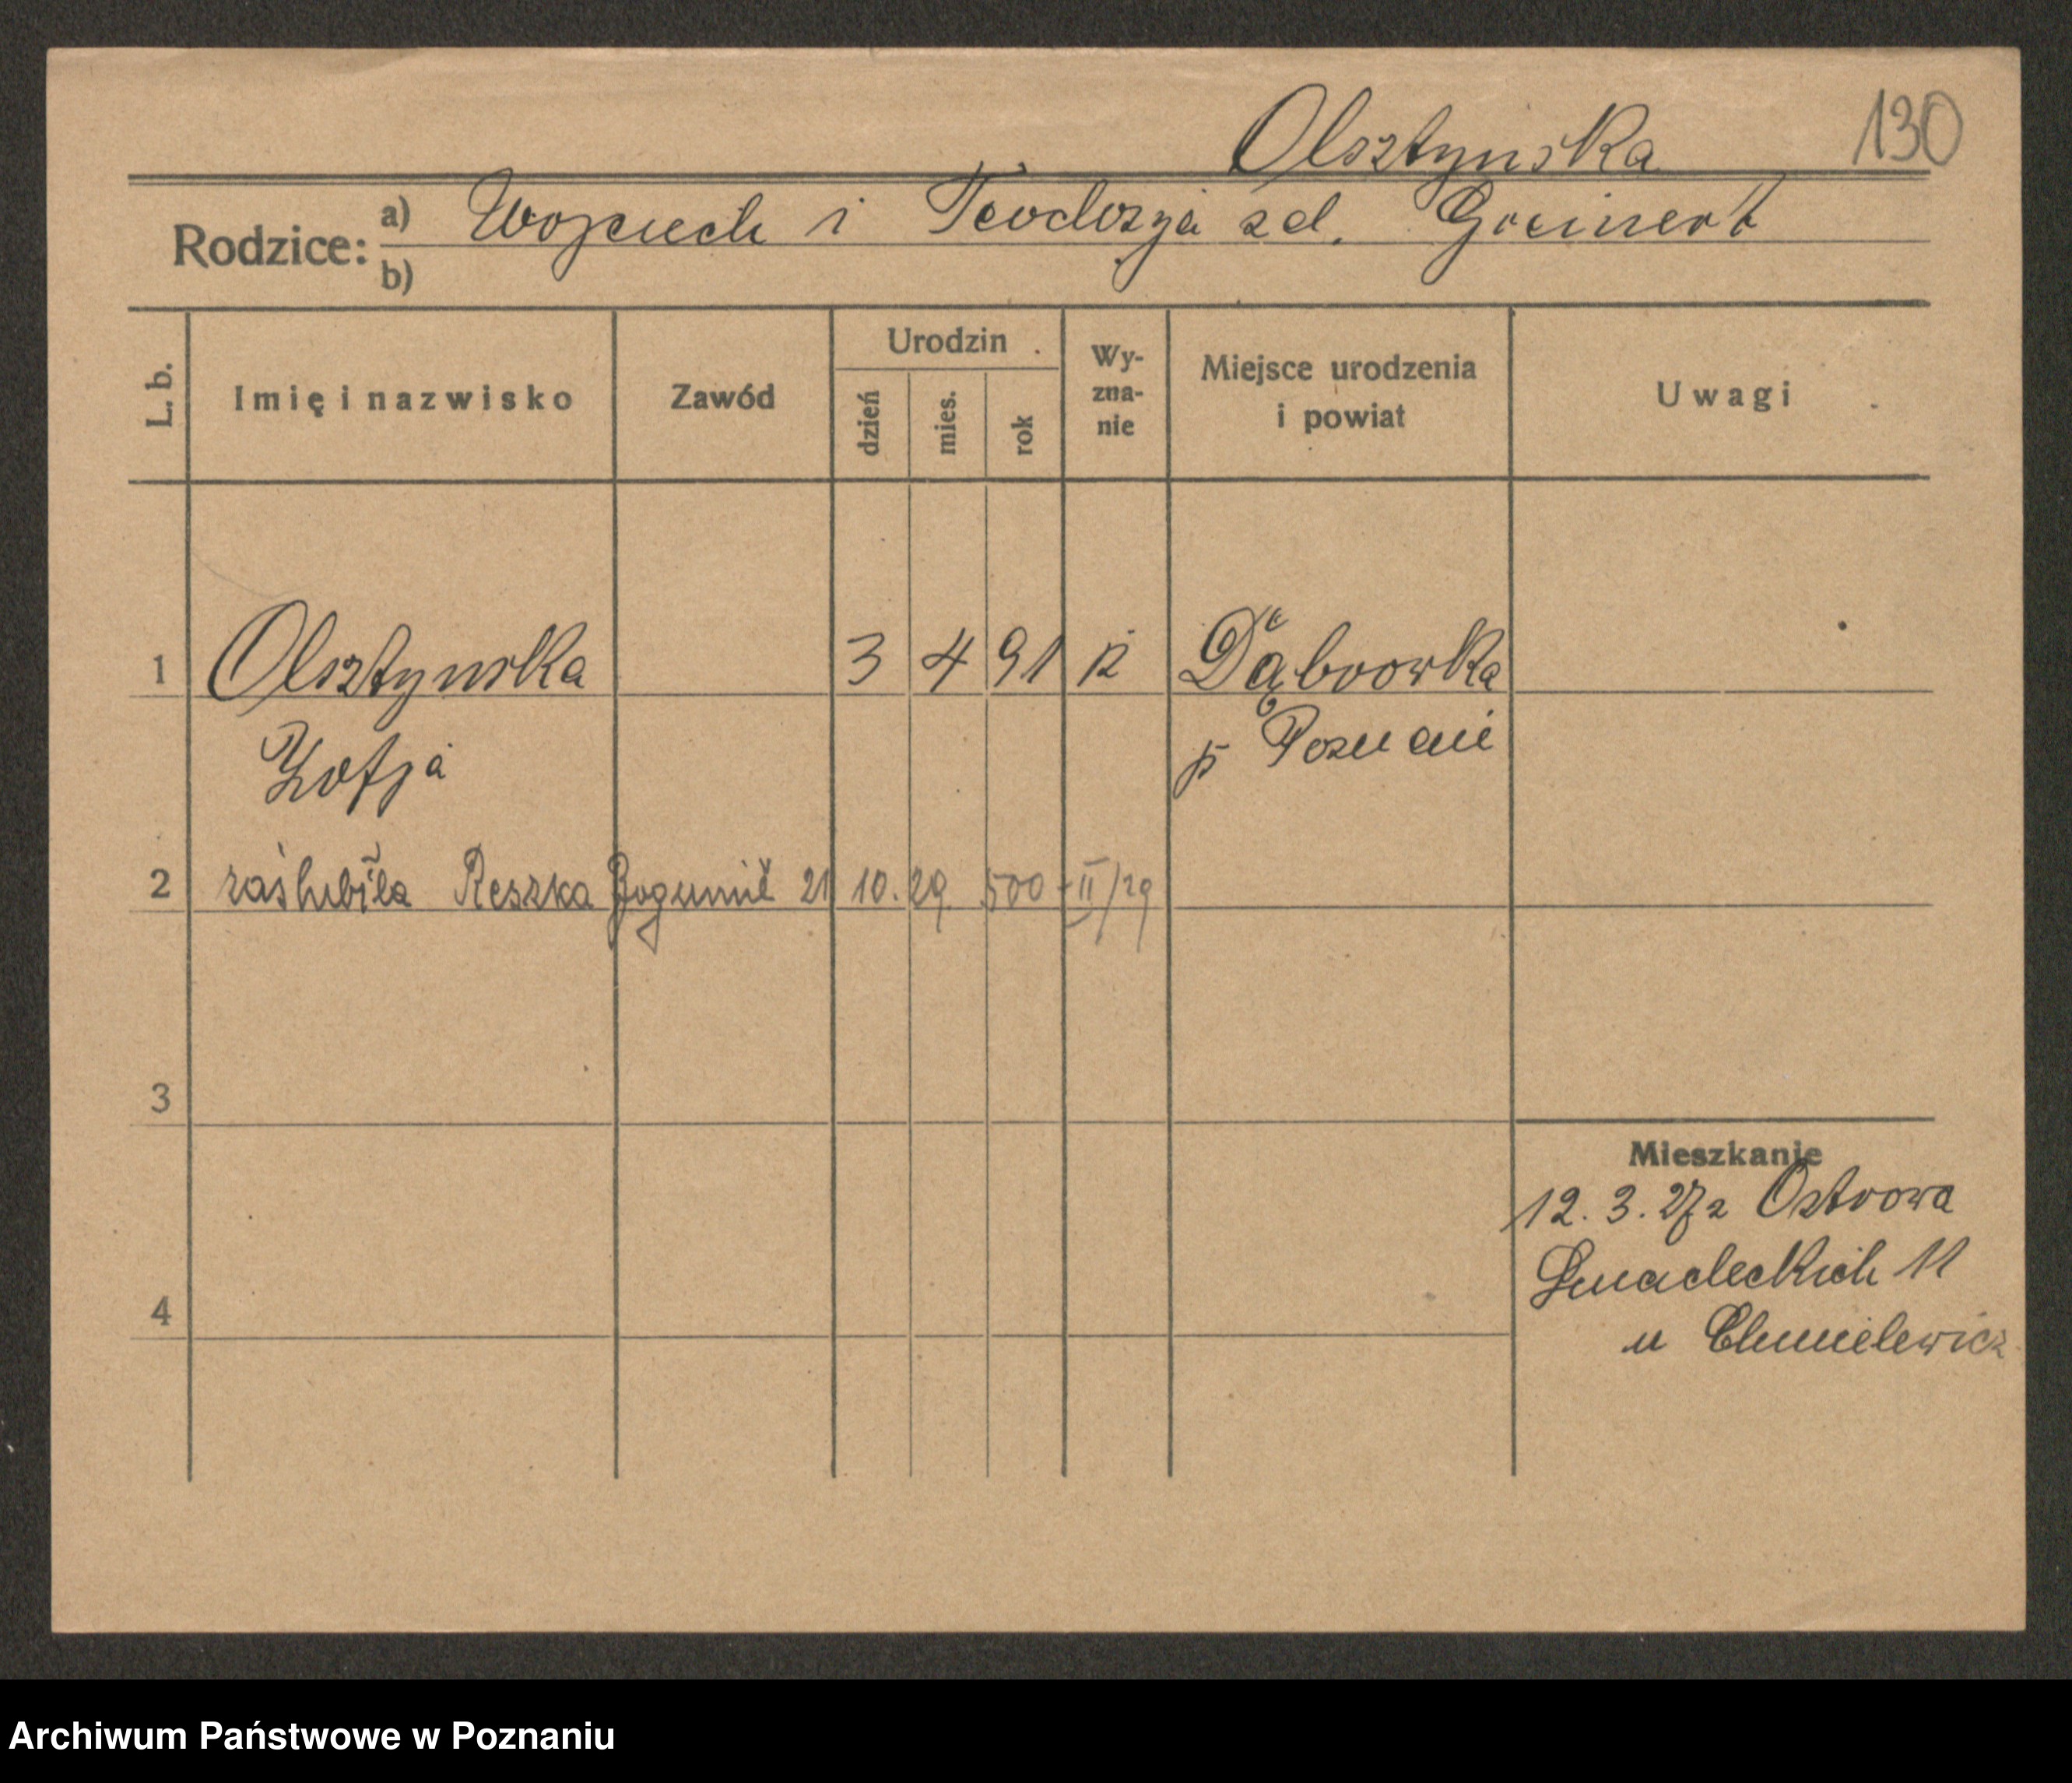 Olsztynska 130
Rodzice: a) Wojciech i Teodozja zd. Greinert
b)
L. b. Imię i nazwisko Zawód Urodzin dzień mies. rok Wy-zna-nie Miejsce urodzenia i powiat Uwagi
1 Olsztynska 3 4 91 R Dąbrowka
Zofja p Poznani
2 zaślubiła Reszka Bogumił 21 10. 29. 500 - II/29
3
Mieszkanie
12. 3. 27 z Ostrowa
Śniadeckich 11
4
u Chmielewicz
Archiwum Państwowe w Poznaniu